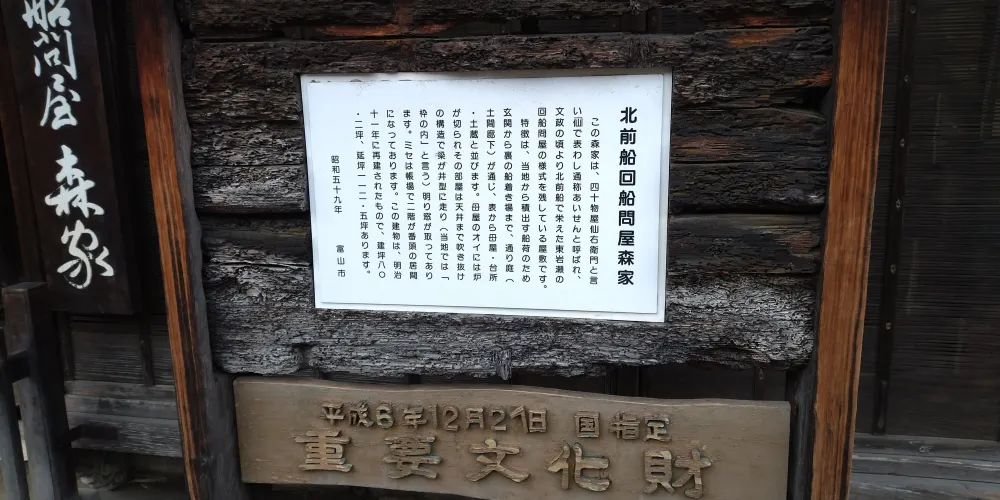 北前船回船問屋森家
この森家は、四十物屋仙右衛門と言
い仙で表わし通称あいせんと呼ばれ、
文政の頃より北前船で栄えた東岩瀬の
回船問屋の様式を残している屋敷です。
特徴は、当地から積出す船荷のため
玄関から裏の船着き場まで、通り庭（
土間廊下）が通じ、表から母屋・台所
・土蔵と並びます。母屋のオイには炉
が切られその部屋は天井まで吹き抜け
の構造で梁が井型に走り（当地では「
枠の内」と言う）明り窓が取ってあり
ます。ミセは帳場で二階が番頭の居間
になっております。この建物は、明治
十一年に再建されたもので、建坪八〇
・二坪、延坪一一二・五坪あります。
昭和五十九年　富山市
船問屋 森家
平成6年12月21日 国指定
重要文化財